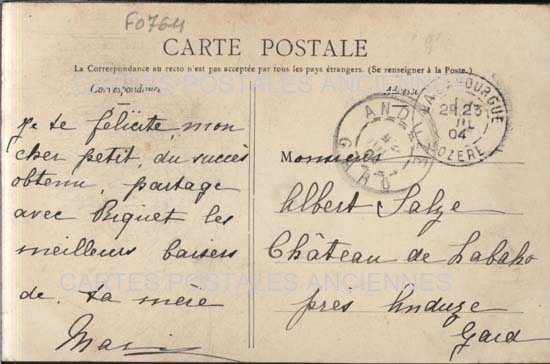 F0764
CARTE POSTALE
La Correspondance au recto n'est pas acceptée par tous les pays étrangers. (Se renseigner à la Poste.)
CARTES POSTALES ANCIENNES
Correspondance
Adresse
Je te félicite, mon
cher petit, du succès
obtenu, partage
avec Riquet les
meilleurs baisers
de ta mère
Mari
NASBINALS 
ANDUZE
GARD
23
04
LOZERE
Monsieur
Albert Salze
Château de Labaho
près Anduze
Gard
CARTES POSTALES ANCIENNES